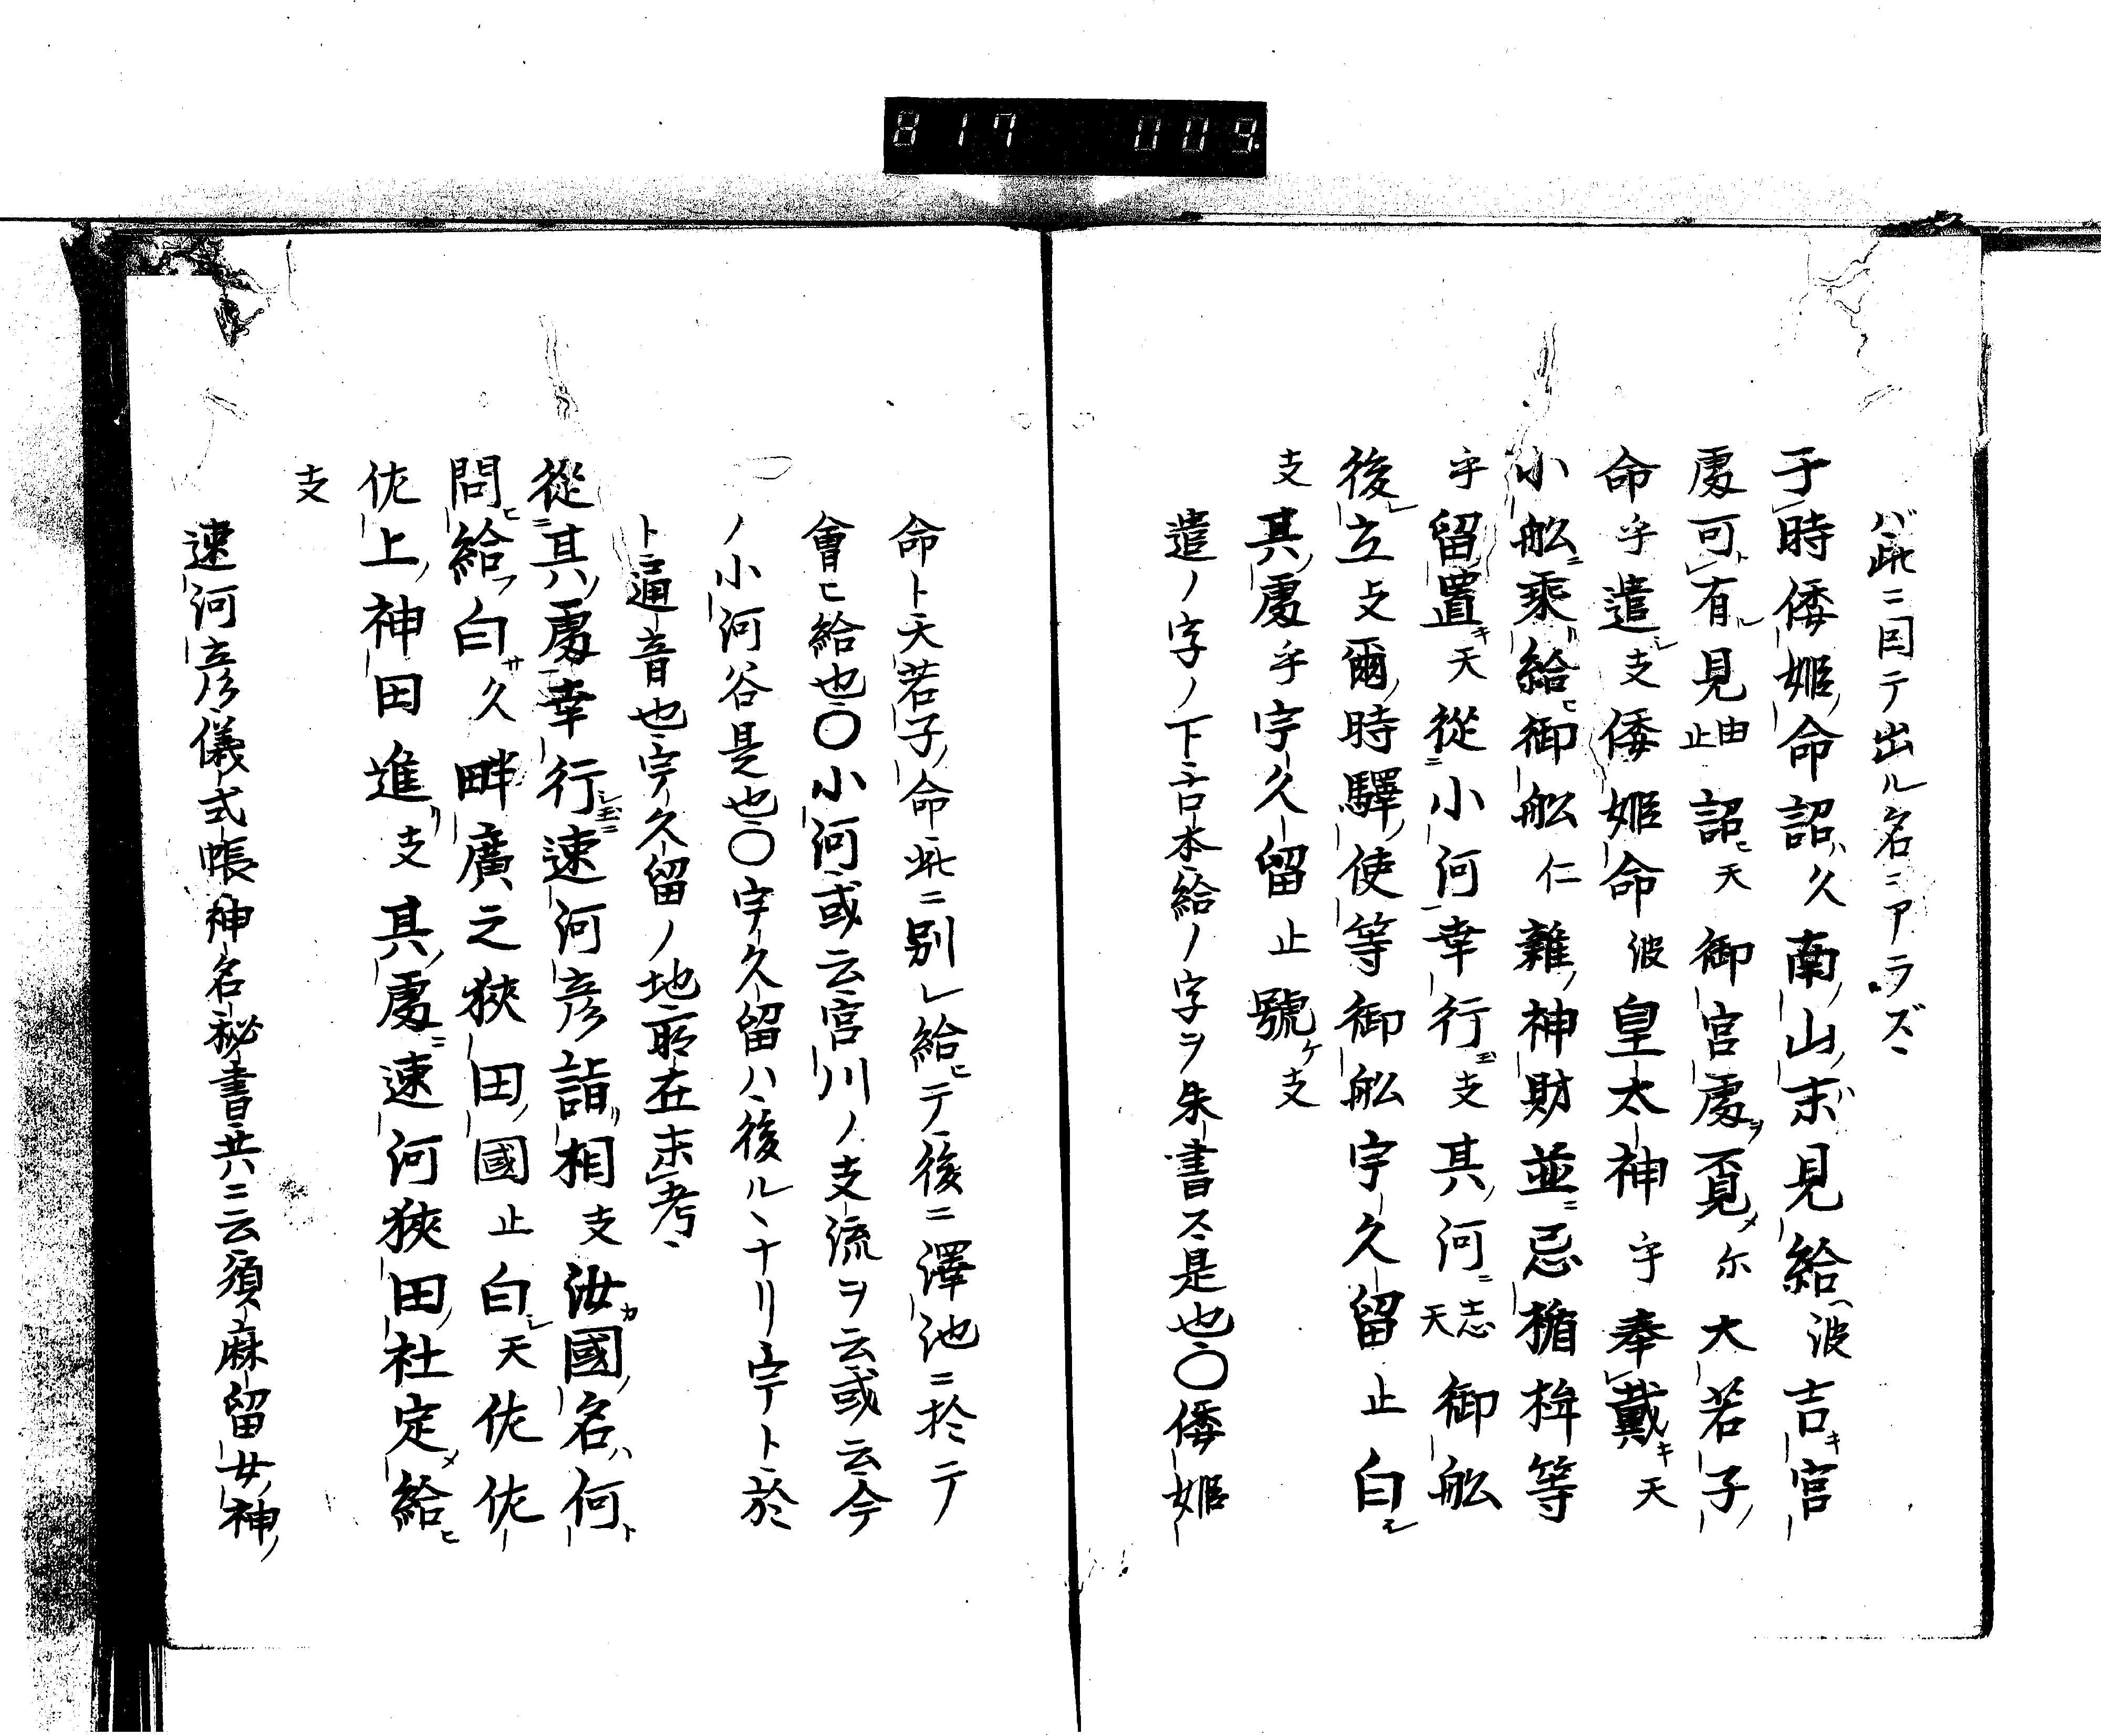 817 009.
バ此ニ因テ出ル名ニアラズ
于時倭姫命詔久南山末見給波吉宮
處可有見由止詔天御宮處覔尓大若子
命乎遣支倭姫命波皇太神乎奉戴天
小舩乘給御舩仁雜神財並忌楯桙等
乎留置天從小河幸行支其河志天御舩
後立支爾時驛使等御舩宇久留止白
支其處乎宇久留止號支
遣ノ字ノ下古本給ノ字ヲ朱書ス是也〇倭姫
命ト大若子命此ニ別レ給ヒテ後ニ澤池ニ於テ
會ヒ給也〇小河或云宮川ノ支流ヲ云或云今
ノ小河谷是也〇宇久留ハ後ルヽナリ宇ト於
ト通音也宇久留ノ地所在未考
從其處幸行速河彦詣相支汝國名何
問給白久畔廣之狹田國止白天佐佐
佐上神田進支其處速河狹田社定給
支
速河彦儀式帳神名秘書共ニ云須麻留女神